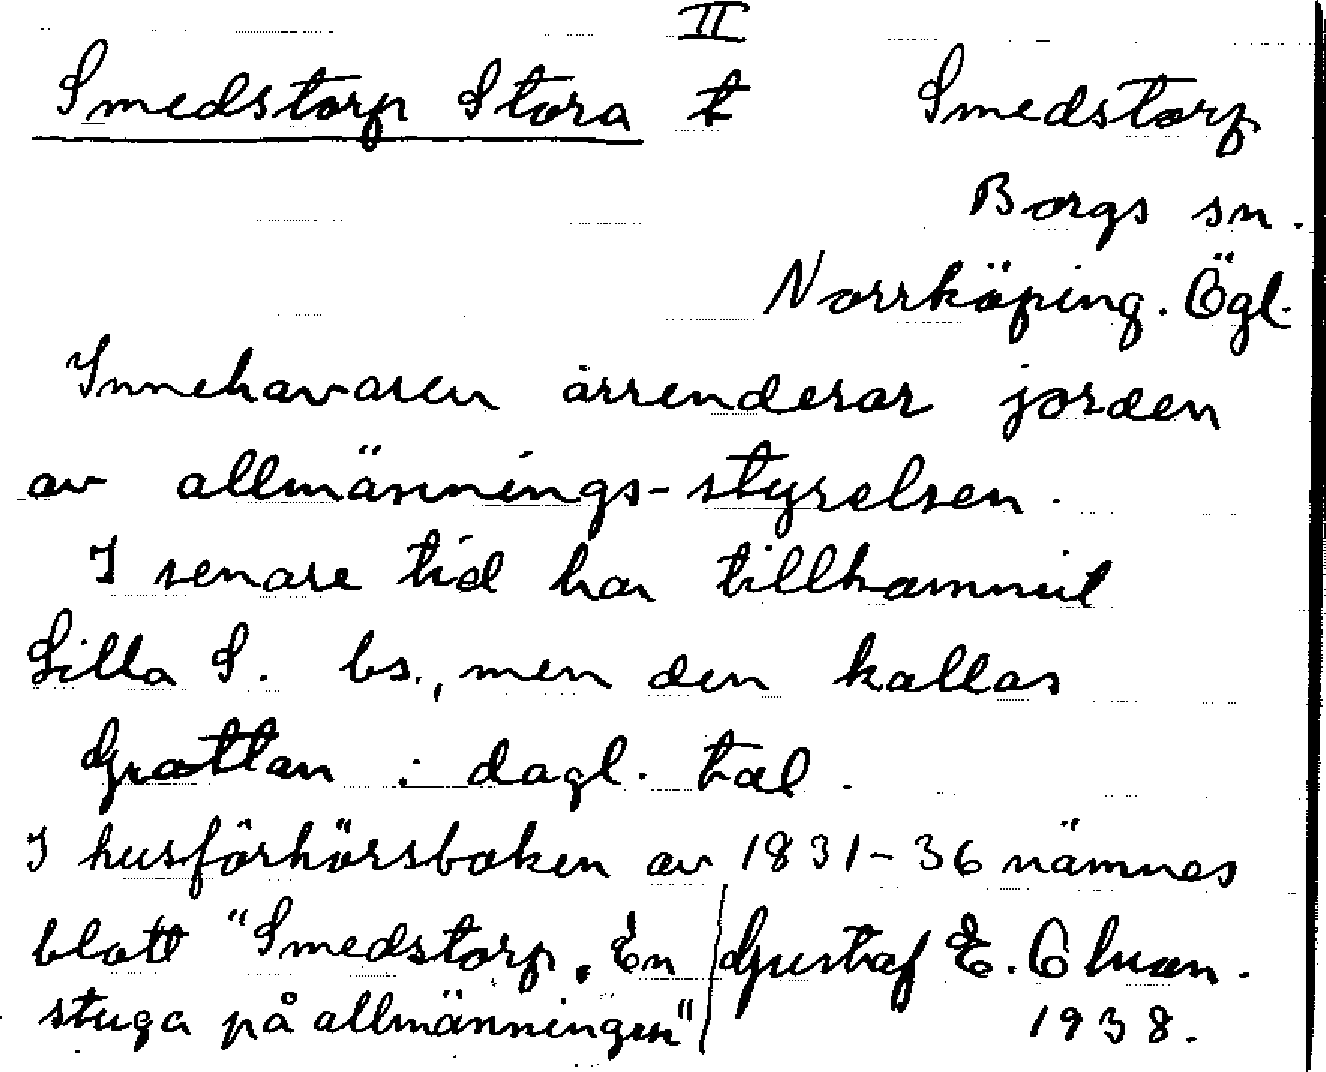 II
Smedstorp Stora t Smedstorp
Borgs sn.
Norrköping. Ögl.
Innehavaren arrenderar jorden
av allmännings-styrelsen.
I senare tid har tillkommit
Lilla S. bs., men den kallas
Grottan i dagl. tal.
I husförhörsboken av 1831-36 nämnes
blott "Smedstorp. En
stuga på allmänningen"
Gustaf E.
1938.